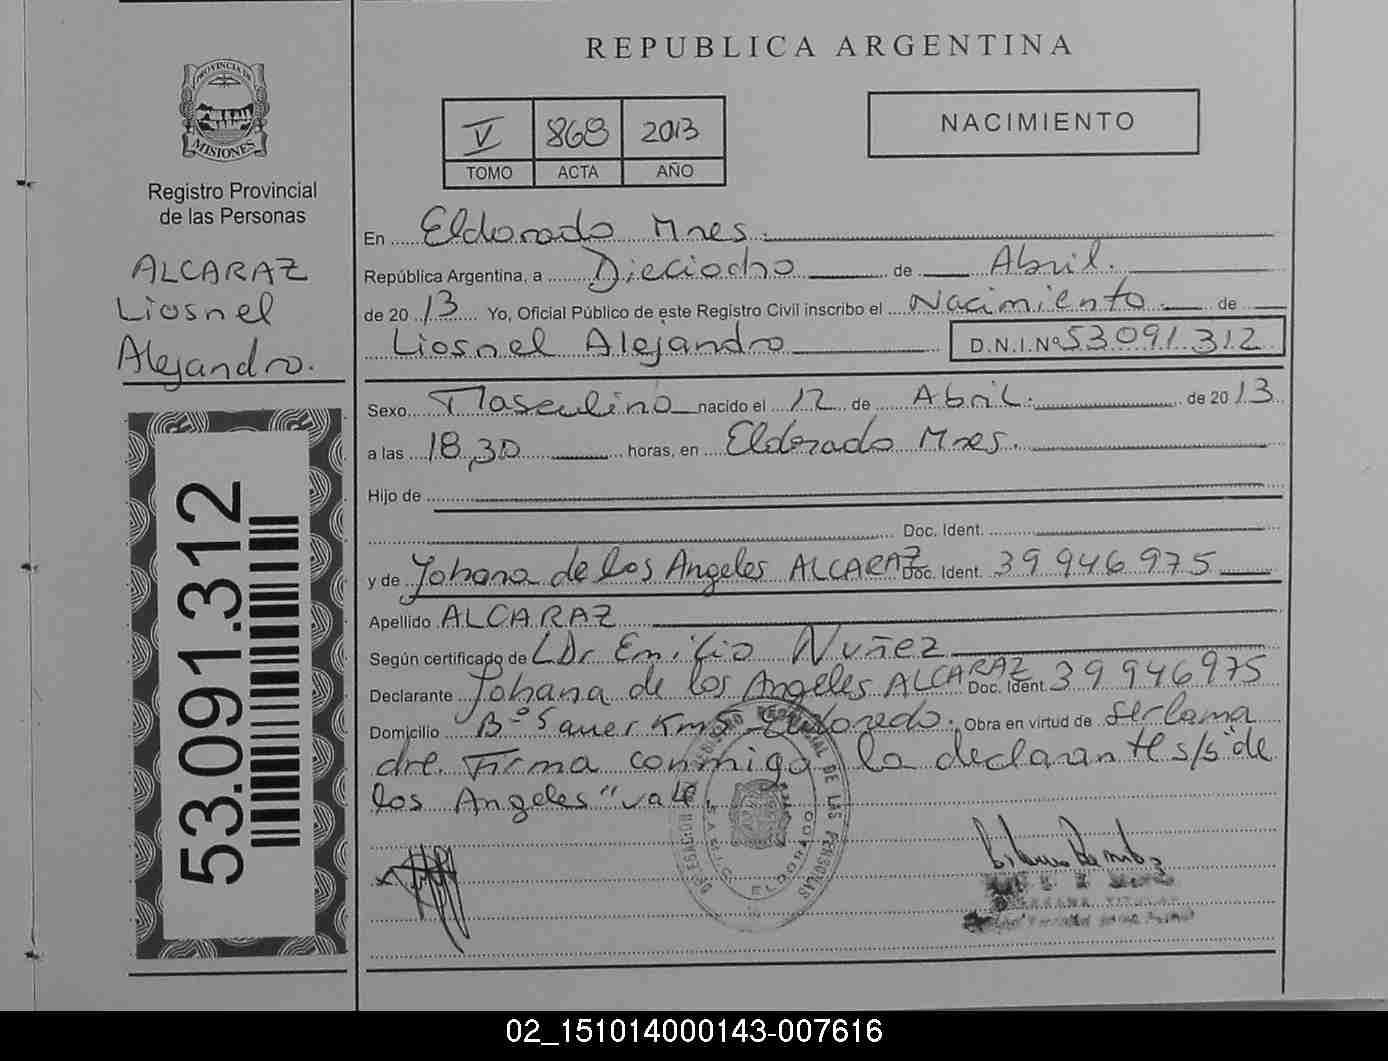 REPUBLICA ARGENTINA
PROVINCIA DE
MISIONES
Registro Provincial
de las Personas
ALCARAZ
Liosnel
Alejandro.
53.091.312
V 868 2013
TOMO ACTA AÑO
NACIMIENTO
En Eldorado Mnes.
República Argentina, a Dieciocho de Abril.
de 20 13 Yo, Oficial Público de este Registro Civil inscribo el Nacimiento de
Liosnel Alejandro D.N.I.Nº 53091312
Sexo Masculino nacido el 12 de Abril. de 20 13
a las 18,30 horas, en Eldorado Mnes.
Hijo de
Doc. Ident.
y de Yohana de los Angeles ALCARAZ Doc. Ident. 39 946 975
Apellido ALCARAZ
Según certificado de Dr Emilio Nuñez
Declarante Yohana de los Angeles ALCARAZ Doc. Ident. 39 946975
Domicilio Bº Sauer Eldorado. Obra en virtud de ser la ma
dre. Firma conmigo la declarante s/s "de
los Angeles" vale.
REGISTRO PROVINCIAL DE LAS PERSONAS
ELDORADO
02_151014000143-007616